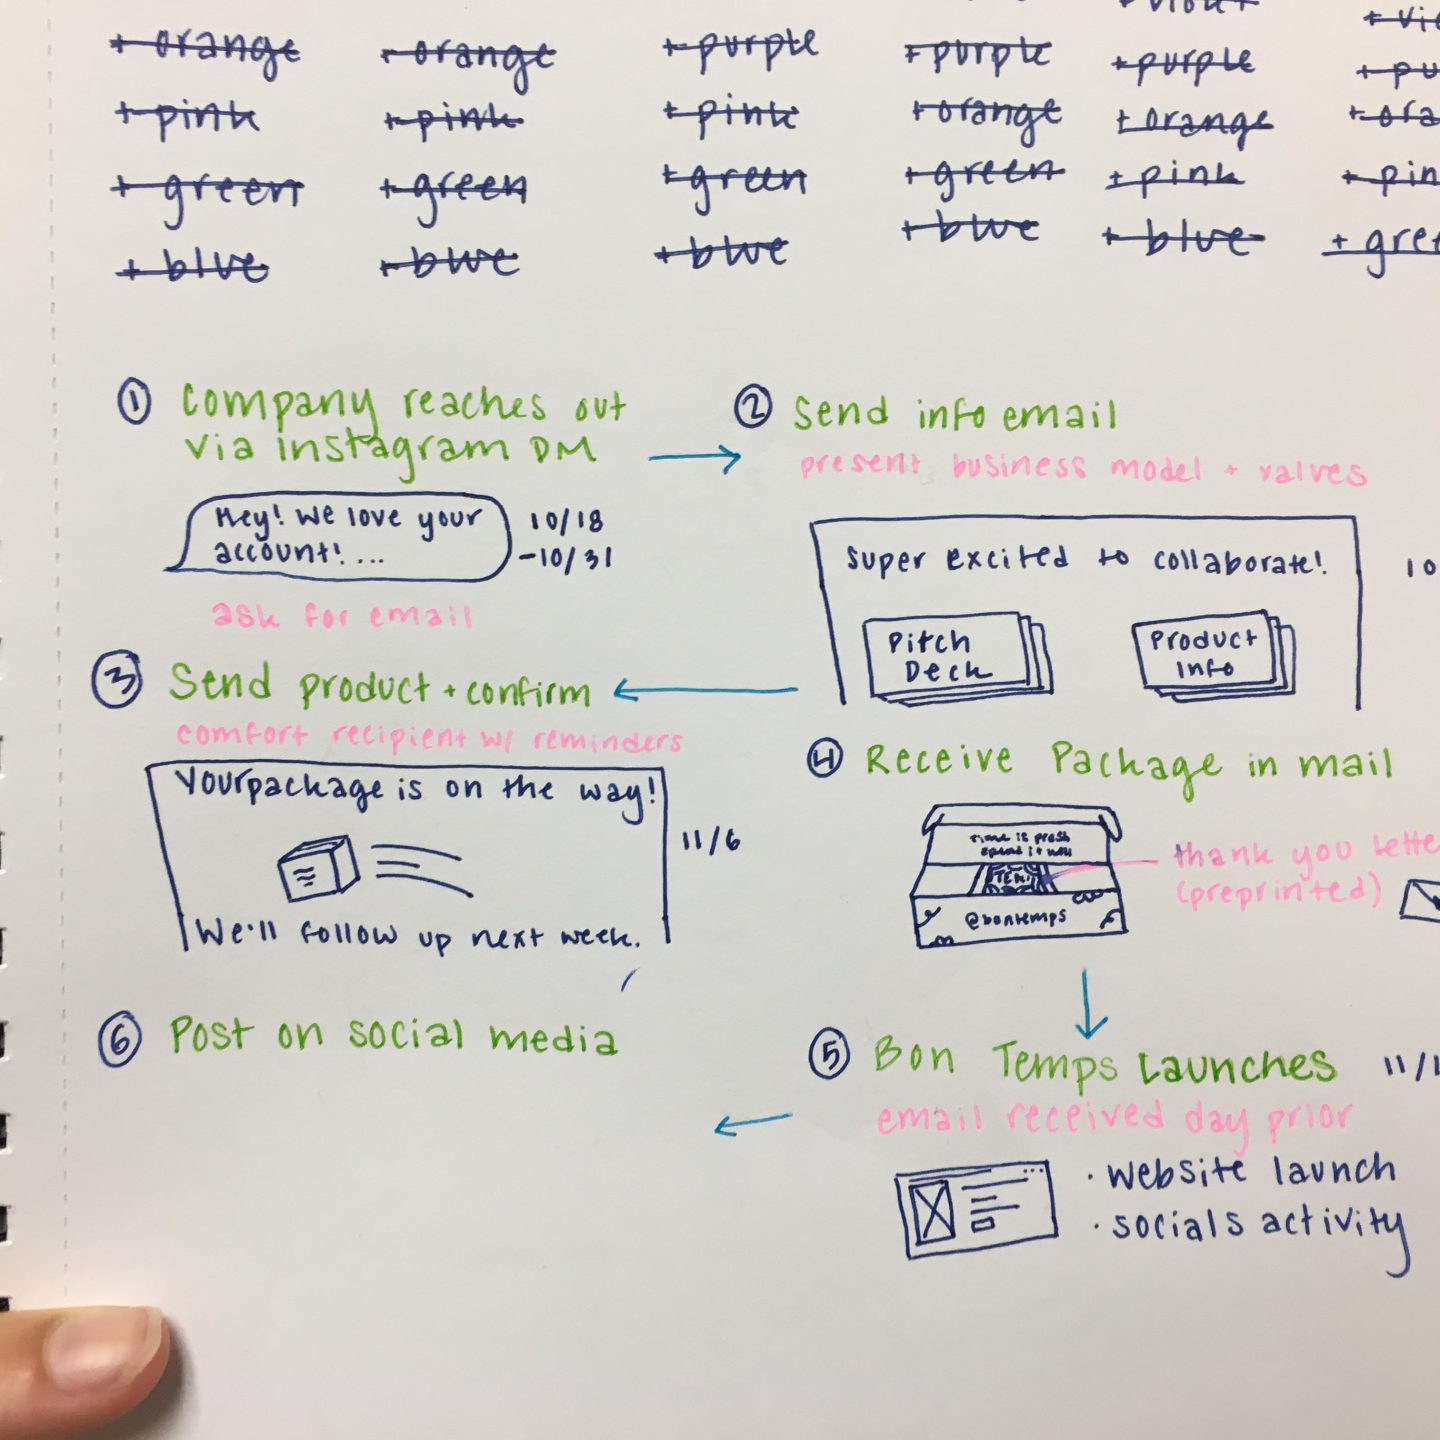 + orange
+ pink
+ green
+ blue
+ orange
+ pink
+ green
+ blue
+ purple
+ pink
+ green
+ blue
+ purple
+ orange
+ green
+ blue
+ purple
+ orange
+ pink
+ blue
① Company reaches out
via instagram DM
Hey! We love your
account! ...
10/18
-10/31
ask for email
② Send info email
present business model + values
super excited to collaborate!
Pitch
Deck
Product
Info
③ Send product + confirm
comfort recipient w/ reminders
Your package is on the way!
We'll follow up next week.
11/6
④ Receive Package in mail
time is
spend it
@bontemps
thank you
(preprinted)
⑤ Bon Temps Launches
email received day prior
· website launch
· socials activity
⑥ Post on social media